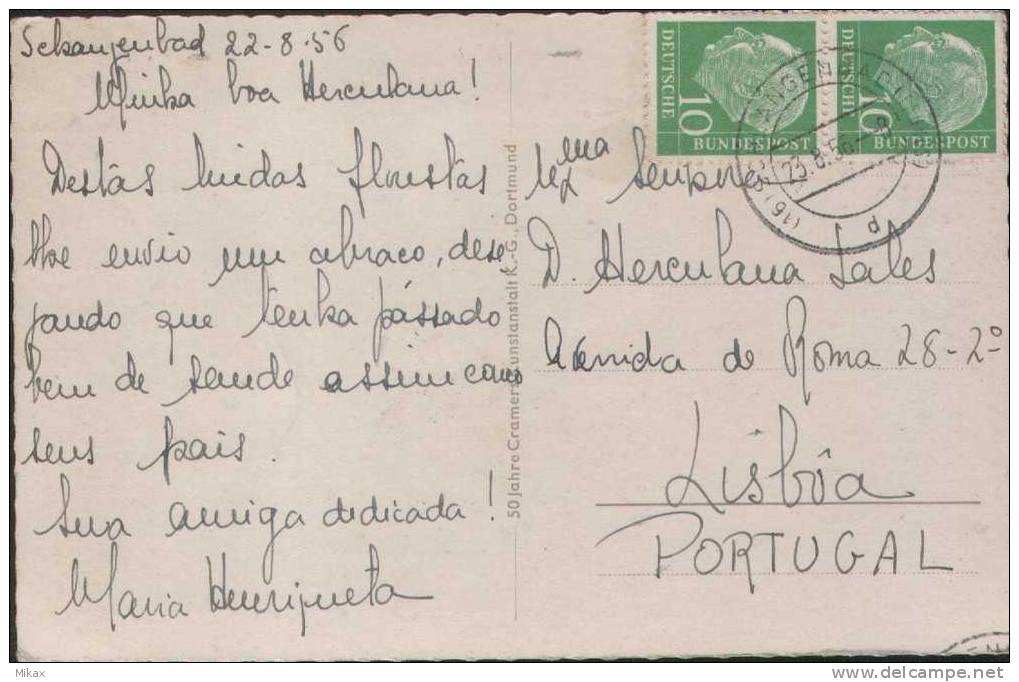 Schangenbad 22-8-56
Minha boa Herculana!
Destas lindas florestas
lhe envio um abraco, dese
jando que tenha pássado
bem de saude assim como
seus pais.
Sua amiga dedicada!
Maria Henriqueta
50 Jahre Cramers Kunstanstalt K.-G., Dortmund
DEUTSCHE
10
BUNDESPOST
DEUTSCHE
10
BUNDESPOST
23.8.56
(16)
p
D. Herculana Sales
Avenida de Roma 28-2º
Lisbôa
PORTUGAL
Mikax
delcampe.net